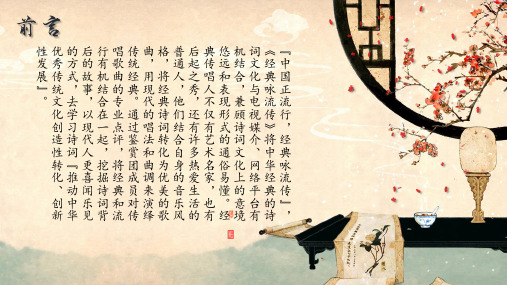 前言
『中国正流行，经典咏流传』，
《经典咏流传》将中华经典的诗
词文化与电视媒介、网络平台有
机结合，兼顾诗词文化上的意境
悠远和表现形式的通俗易懂。经
典传唱人不仅有艺术名家，也有
后起之秀，还有许多热爱生活的
普通人，他们结合自身的音乐风
格，将经典诗词转化为优美的歌
曲，用现代的唱法和曲调来演绎
传统经典。通过鉴赏团成员对传
唱歌曲的专业点评，将经典和流
行有机结合在一起，挖掘诗词背
后的故事，以现代人更喜闻乐见
的方式，去学习诗词『推动中华
优秀传统文化创造性转化、创新
性发展』。